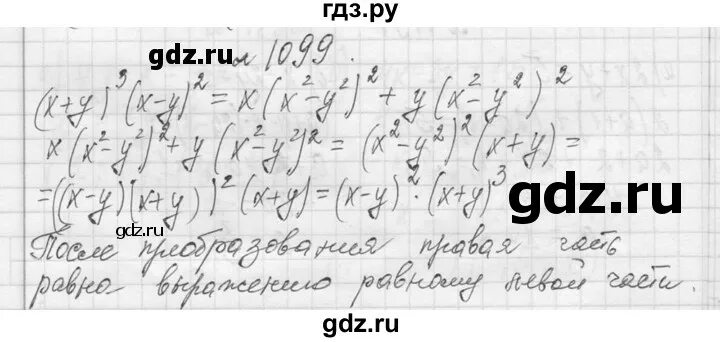 гдз.ру
gdz.ru
№ 1099.
(x+y)³(x-y)² = x(x²-y²)² + y(x²-y²)²
x(x²-y²)² + y(x²-y²)² = (x²-y²)²(x+y) =
=((x-y)(x+y))²(x+y) = (x-y)²·(x+y)³
gdz.ru
gdz.ru
После преобразования правая часть
равна выражению равному левой части.
gdz.ru